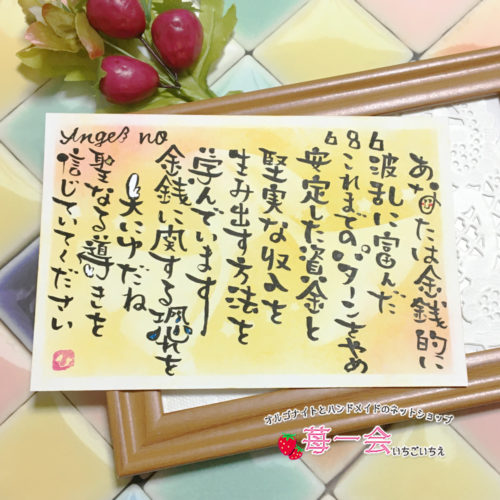 Angels no
686
あなたは金銭的に
波乱に富んだ
これまでのパターンをやめ
安定した資金と
堅実な収入を
生み出す方法を
学んでいます
金銭に関する恐れを
天にゆだね
聖なる導きを
信じていてください
オルゴナイトとハンドメイドのネットショップ
苺一会いちごいちえ